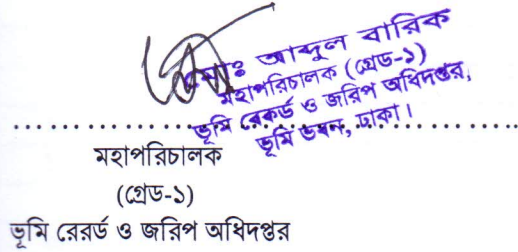 মোঃ আব্দুল বারিক
মহাপরিচালক (গ্রেড-১)
ভূমি রেকর্ড ও জরিপ অধিদপ্তর,
ভূমি ভবন, ঢাকা।
মহাপরিচালক
(গ্রেড-১)
ভূমি রেরর্ড ও জরিপ অধিদপ্তর